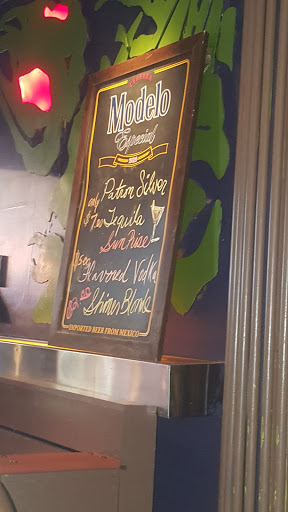 Modelo
Especial
only Patron Silver
$7.00 Tequila
SunRise
$5.00
Flavored Vodka
Shiner Blonde
IMPORTED BEER FROM MEXICO